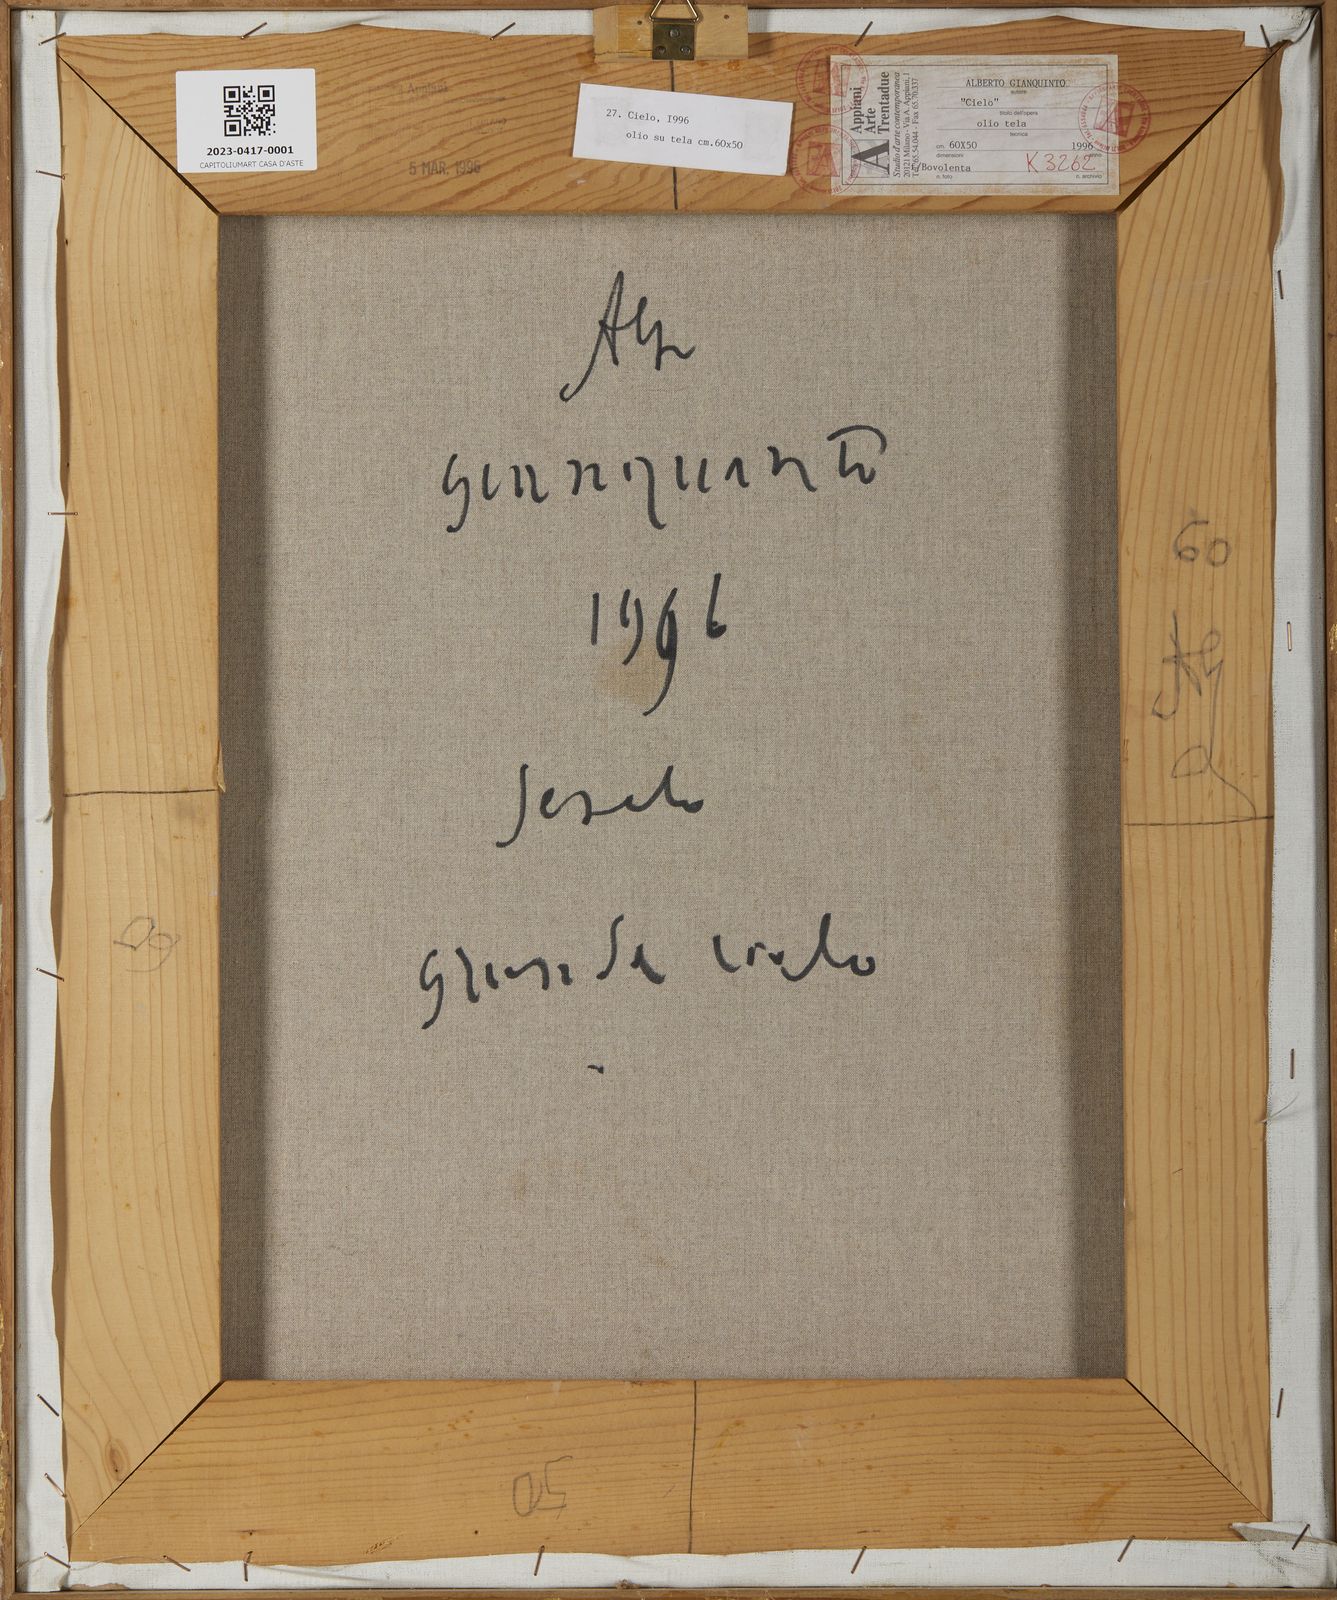 2023-0417-0001
CAPITOLIUMART CASA D'ASTE
Appiani
5 MAR. 1996
27. Cielo, I996
olio su tela cm.60x50
Appiani
Arte
Trentadue
Studio d'arte contemporanea
20121 Milano - Via A. Appiani, 1
Tel. 65.54.044 - Fax 65.70.337
ALBERTO GIANQUINTO
autore
"Cielo"
titolo dell'opera
olio tela
tecnica
cm. 60X50
dimensioni
1996
anno
F/Bovolenta
n. foto
K3262
n. archivio
Gianquinto
1996
Jesolo
grande cielo
60
60
50